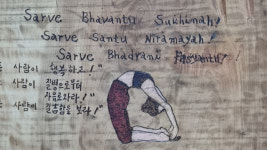 Sarve Bhavantu Sukhinah!
Sarve Santu Niramayah!
Sarve Bhadrani Pashyantu!
사람이 행복하고!"
사람이 질병으로부터
자유로와라!"
사람에
보라!"